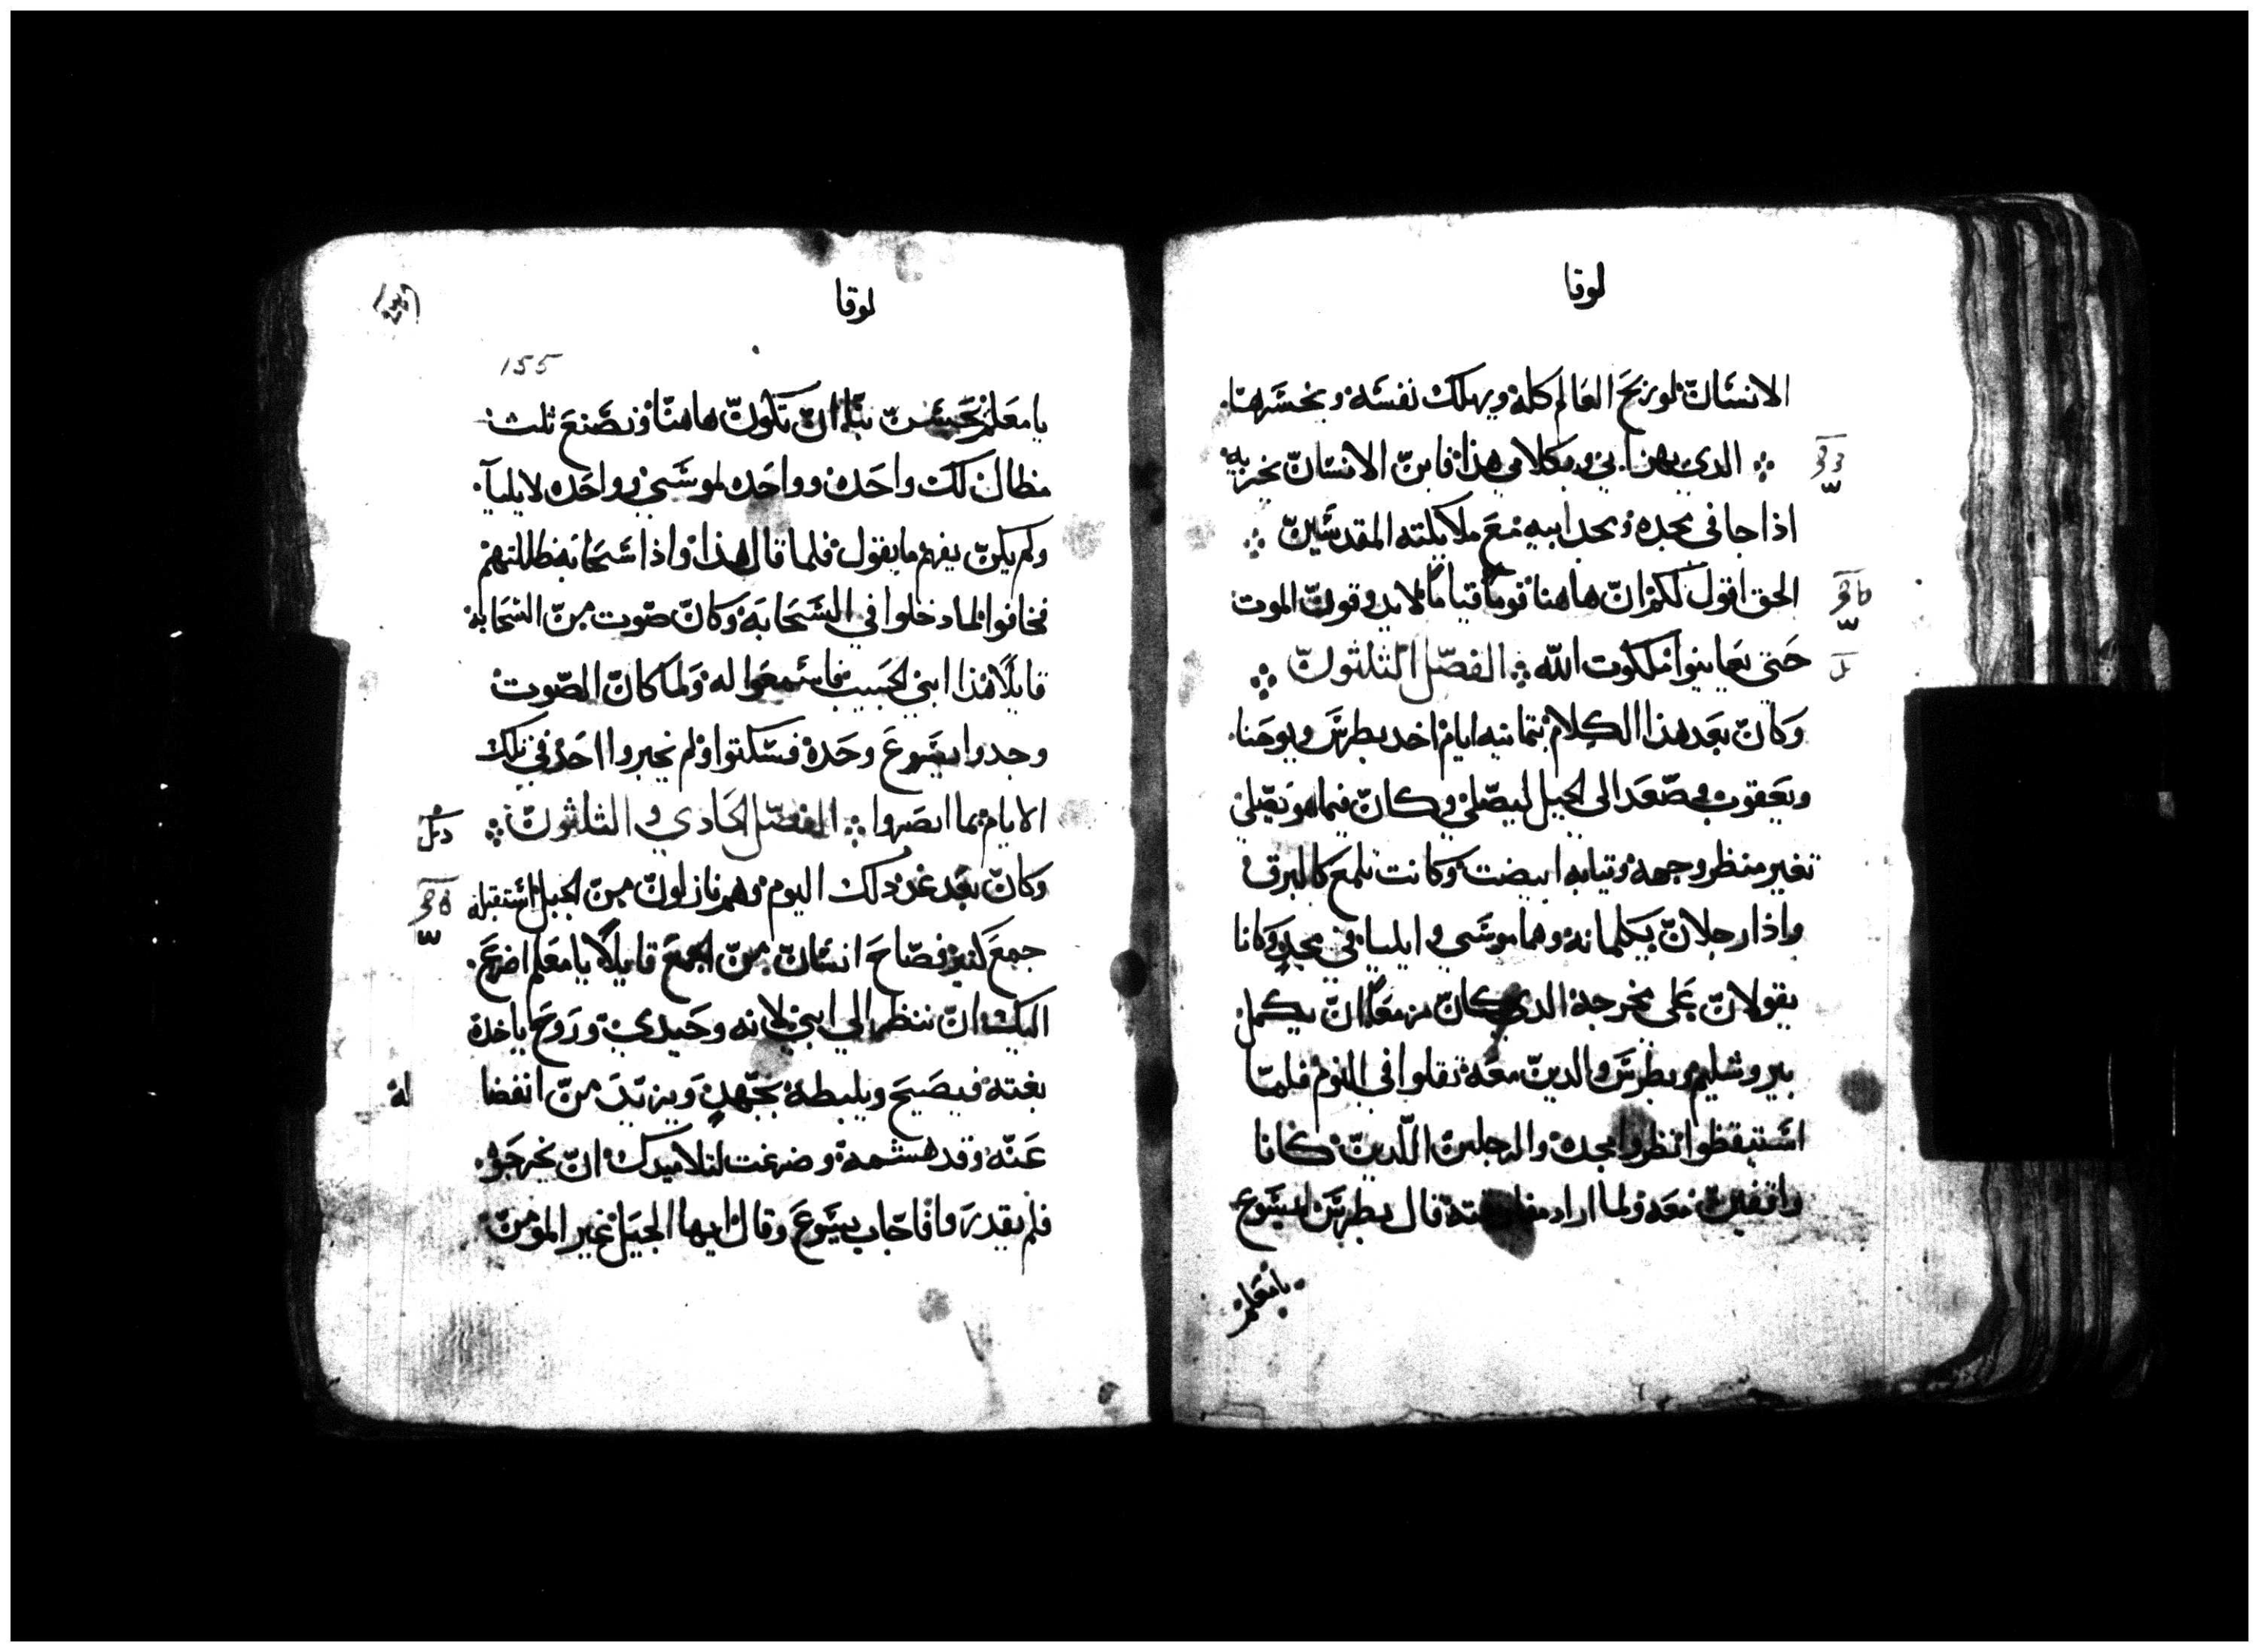 لوقا
الانسان لو ربح العالم كله ويهلك نفسه ويخسرها
الذي يهزا بي وبكلامي هذا فابن الانسان يخزيه
اذا جا في مجده ومجد ابيه مع ملايكته المقدسين
الحق اقول لكم ان هاهنا قوما قياما لا يدوقون الموت
حتى يعاينوا ملكوت الله الفصل الثلثون
وكان بعد هذا الكلام بتمانيه ايام اخد بطرس ويوحنا
ويعقوب وصعد الى الجبل ليصلي وكان فيما هو يصلي
تغير منظر وجهه وتيابه ابيضت وكانت تلمع كالبرق
واذا رجلان يكلمانه وهما موسي وايليا في مجد وكانا
يقولان على مخرجه الدي كان مزمعا ان يكمل
بيروشليم وبطرس والدين معه تقلوا في النوم فلما
استيقظوا نظروا مجده والرجلين اللدين كانا
واقفين معه ولما اراد قال بطرس ليسوع
يا معلم
لوقا
155
يا معلم حسن بنا ان نكون هاهنا ونصنع ثلث
مظال لك واحده وواحده لموسي وواحده لايليا
ولم يكن يفهم ما يقول فلما قال هذا واذا سحابه ظللتهم
فخافوا لما دخلوا في السحابه وكان صوت من السحابه
قايلا هذا ابني الحبيب فاسمعوا له ولما كان الصوت
وجدوا يسوع وحده فسكتوا ولم يخبروا احد في تلك
الايام بما ابصروا الفصل الحادي والثلثون
وكان بعد غد دلك اليوم وهم نازلون من الجبل استقبله
جمع كثير فصاح انسان من الجمع قايلا يا معلم اضرع
اليك ان تنظر الي ابني لانه وحيدي وروح ياخده
بغته فيصيح ويلبطه بجهد ويزبد من انفضا
له
عنه وقد هشمه وضرعت لتلاميدك ان يخرجوه
فلم يقدروا فاجاب يسوع وقال ايها الجيل غير المومن